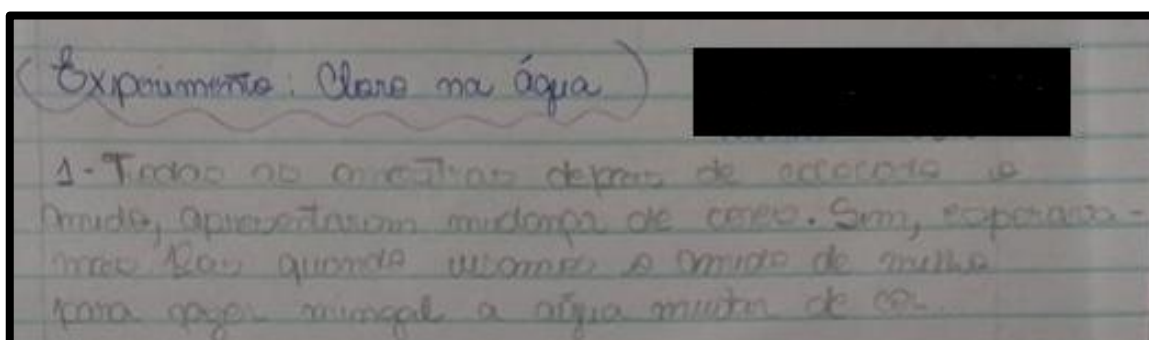 (Experimento: Cloro na água)
1- Todas as amostras depois de colocado o
amido, apresentaram mudança de cores. Sim, esperava-
mos quando usamos o amido de milho
para fazer mingal a água muda de cor.